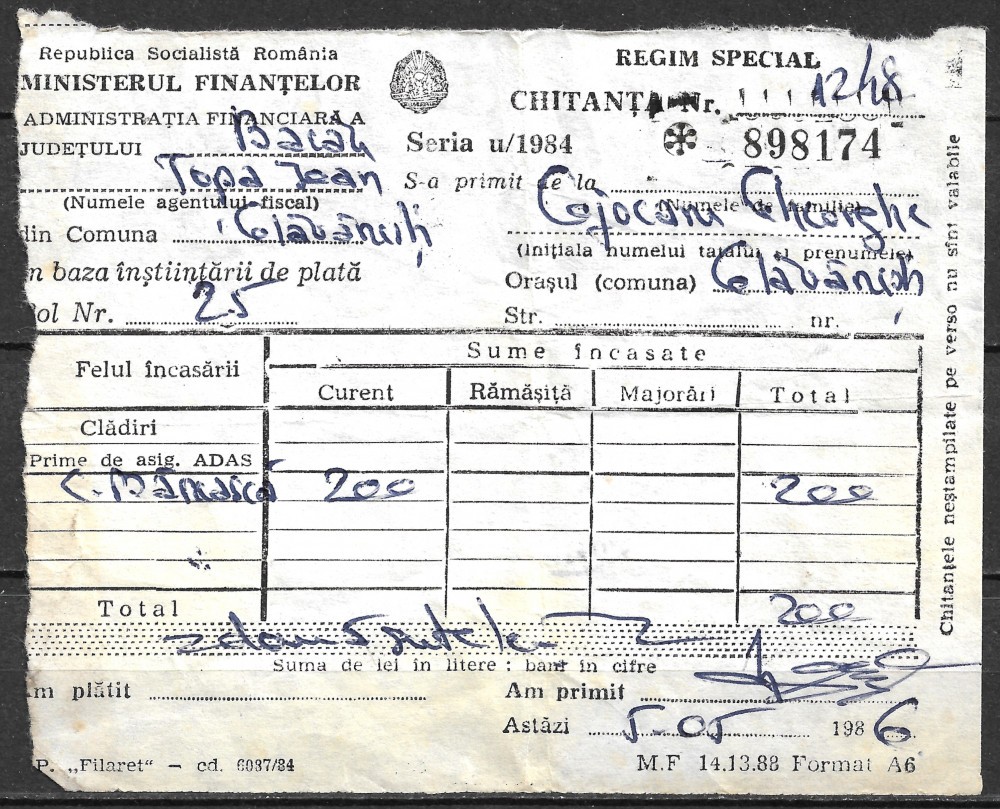 Republica Socialistă România
MINISTERUL FINANȚELOR
ADMINISTRAȚIA FINANCIARĂ A
JUDEȚULUI Bacău
Topa Jean
(Numele agentului fiscal)
din Comuna Glăvănești
în baza înștiințării de plată
Rol Nr. 25
REGIM SPECIAL
CHITANȚA Nr. 1248
Seria u/1984 898174
S-a primit de la
Cojocaru Gheorghe
(Numele de familie)
(Inițiala numelui tatălui și prenumele)
Orașul (comuna) Glăvănești
Str. nr.
Felul încasării Sume încasate
Curent Rămășiță Majorări Total
Clădiri
Prime de asig. ADAS
200 200
Total 200
Suma de lei în litere : bani în cifre
Am plătit Am primit
Astăzi 5.05 1986
P. „Filaret" — cd. 6087/84 M.F 14.13.88 Format A6
Chitanțele neștampilate pe verso nu sînt valabile